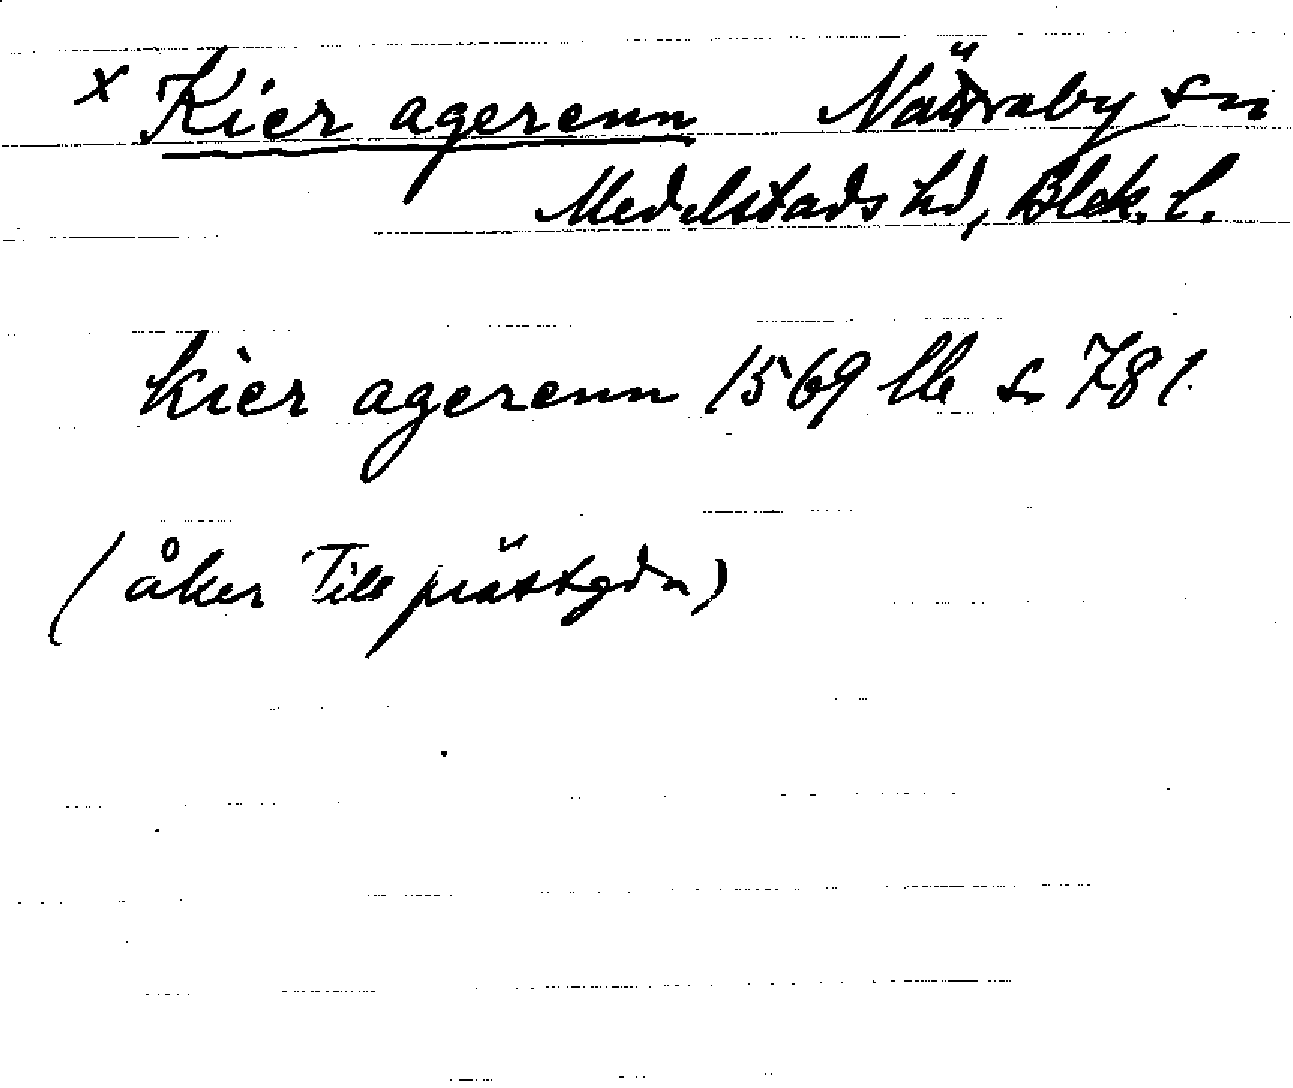 x Kier agerenn Nättraby sn
Medelstads hd, Blek. l.
kier agerenn 1569 llb s 781.
(åker till prästgdn)